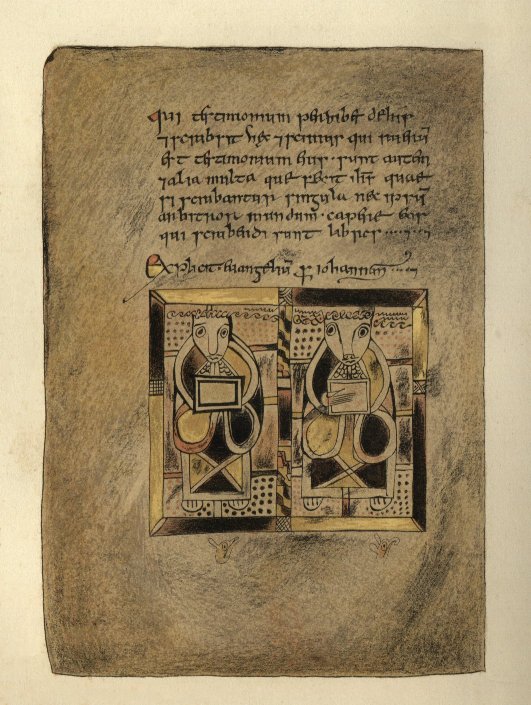 qui testimonium perhibet de his
⁊ scribsit hec ⁊ scimus qui uerū
est testimonium eius · sunt autem
⁊ alia multa que fecit ihs quae
si scribantur singula nec ipsū
arbitror mundum · capire eos
qui scribendi sunt libros
Explicit euangeliū iohannen